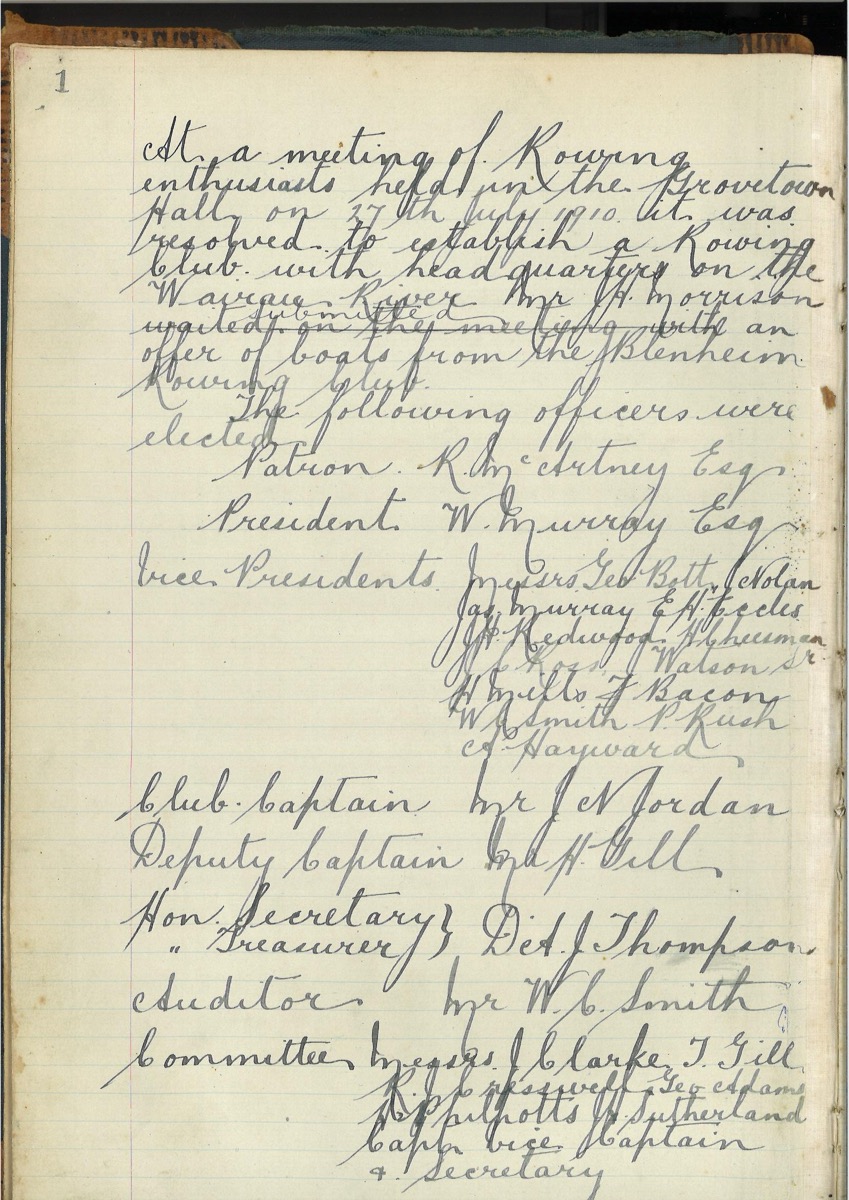 1
At a meeting of Rowing
enthusiasts held in the Grovetown
Hall on 27th July 1910 it was
resolved to establish a Rowing
Club with headquarters on the
Wairau River Mr J H Morrison
submitted
waited on the meeting with an
offer of boats from the Blenheim
Rowing Club.
The following officers were
elected
Patron. R. McArtney Esq
President W. Murray Esq
Vice Presidents Messrs Geo Bott, Nolan
Jas Murray E H Eccles
J H Redwood H Cheesman
J C Ross Watson Sr
H Mills F Bacon
W C Smith P. Rush
A Hayward
Club Captain Mr J N Jordan
Deputy Captain Mr H. Gill
Hon. Secretary }
" Treasurer } D A. J Thompson
Auditor Mr W. C. Smith
Committee Messrs J Clarke T. Gill
R. J Cresswell Geo Adams
Philpotts J. Sutherland
Capt. Vice Captain
& Secretary